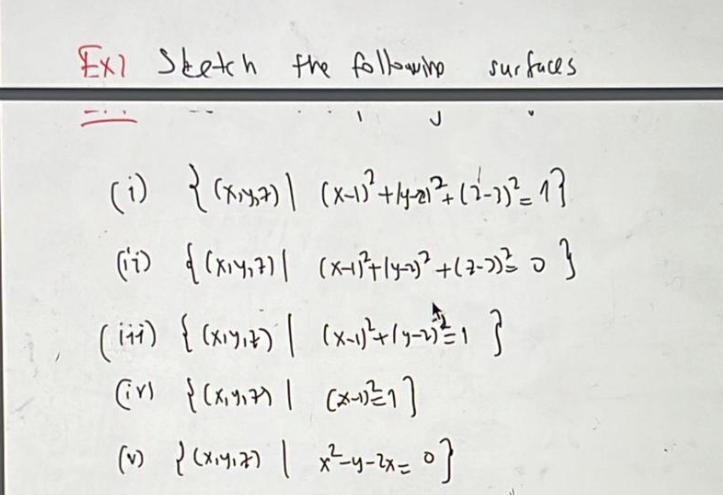 Ex1 Sketch the following surfaces
(i) {(x,y,z) | (x-1)²+(y-2)²+(z-3)²=1}
(ii) {(x,y,z) | (x-1)²+(y-2)²+(z-3)²=0}
(iii) {(x,y,z) | (x-1)²+(y-2)²=1}
(iv) {(x,y,z) | (x-1)²=1}
(v) {(x,y,z) | x²-y-2x=0}